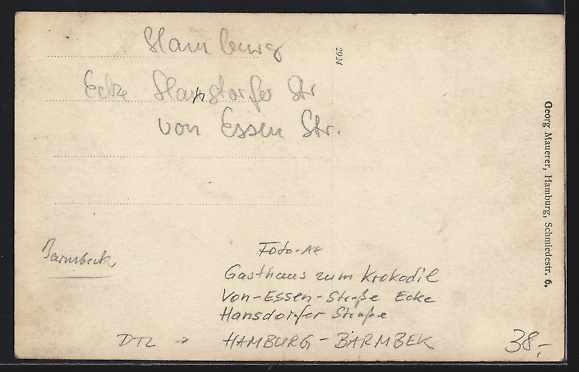 Hamburg
Ecke Hansdorfer Str
von Essen Str.
2924
Georg Mauerer, Hamburg, Schmiedestr. 6.
Barmbeck
Foto-AK
Gasthaus zum Krokodil
Von-Essen-Straße Ecke
Hansdorfer Straße
DTL → HAMBURG-BARMBEK
38,-